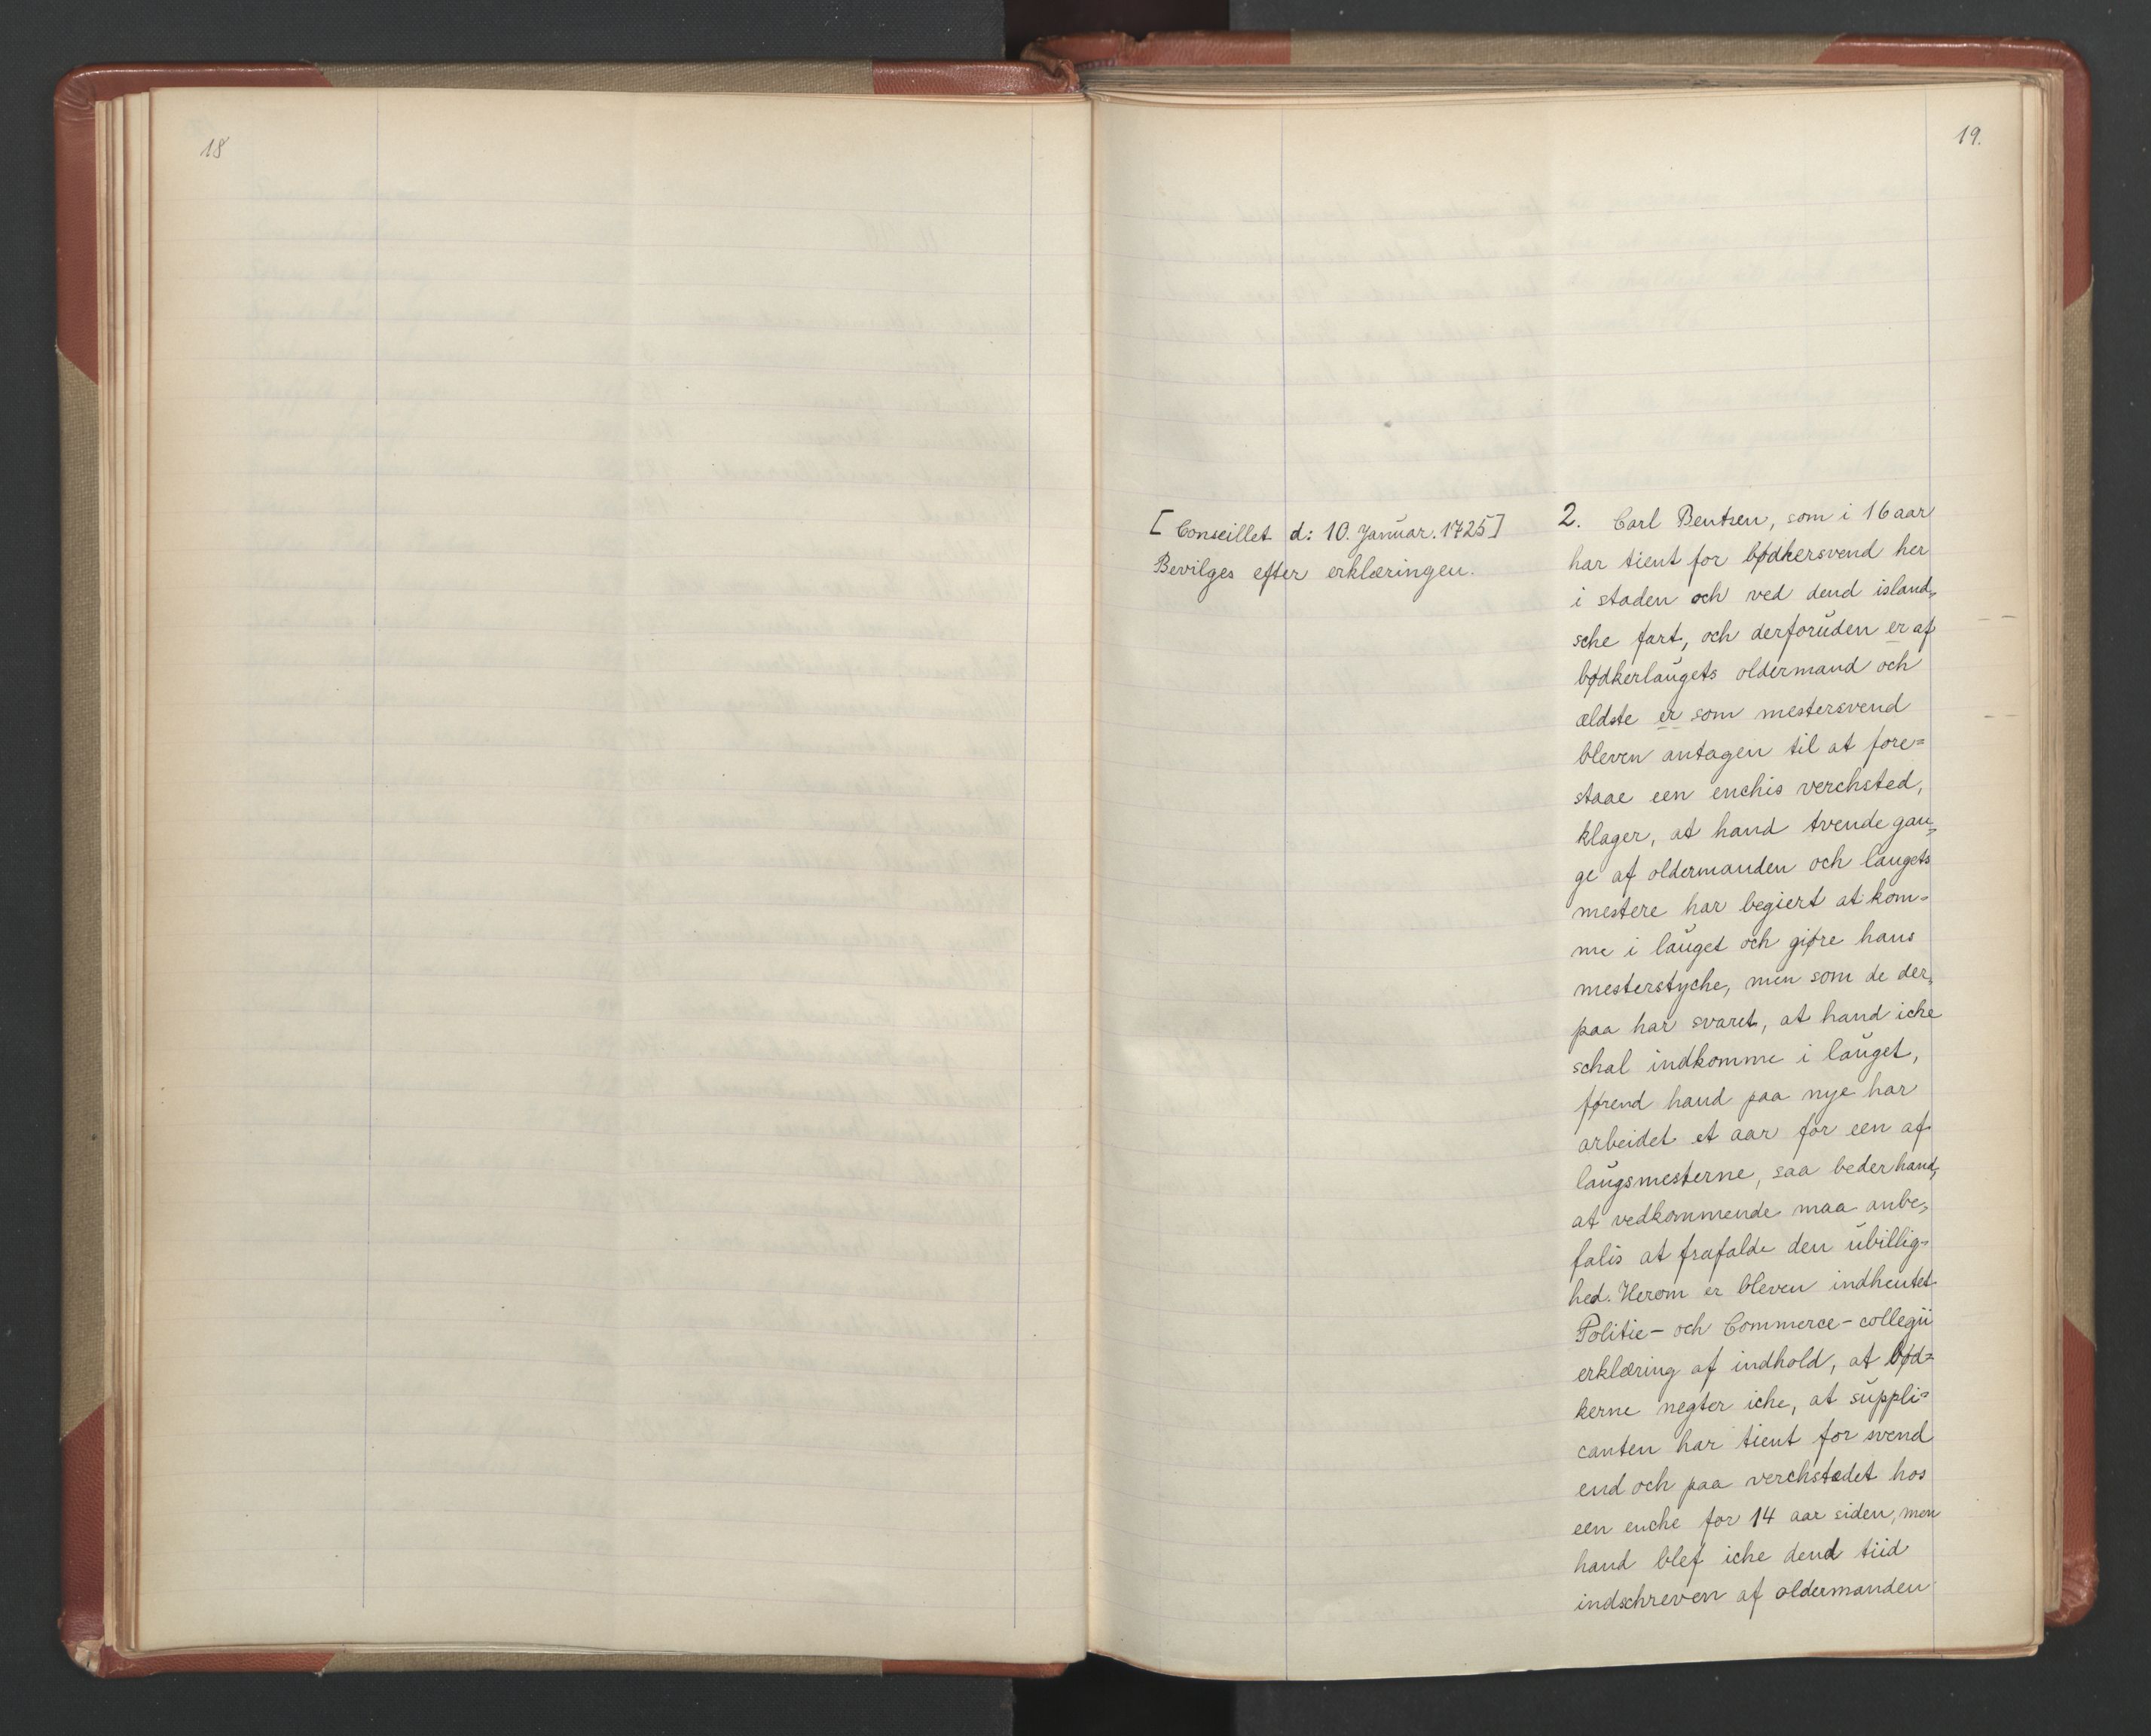 18
19.
[Conseillet d: 10. Januar. 1725]
Bevilges efter erklæringen.
2. Carl Bentsen, som i 16 aar
har tient for bødkersvend her
i staden och ved dend island„
sche fart, och derforuden er af
bødkerlaugets oldermand och
ældste er som mestersvend
bleven antagen til at fore=
staae een enchis verchsted,
klager, at hand tvende gan„
ge af oldermanden och laugets
mestere har begiert at kom=
me i lauget och giøre hans
mesterstyche, men som de der„
paa har svaret, at hand iche
schal indkomme i lauget,
førend hand paa nye har
arbeidet et aar for een af
laugsmesterne, saa beder hand,
at vedkommende maa anbe„
falis at frafalde den ubillig=
hed. Herom er bleven indhentet
Politie- och Commerce-collegii
erklæring af indhold, at bød=
kerne negter iche, at suppli=
canten har tient for svend
end och paa verchstedet hos
een enche for 14 aar siden, men
hand blef iche dend tiid
indschreven af oldermanden